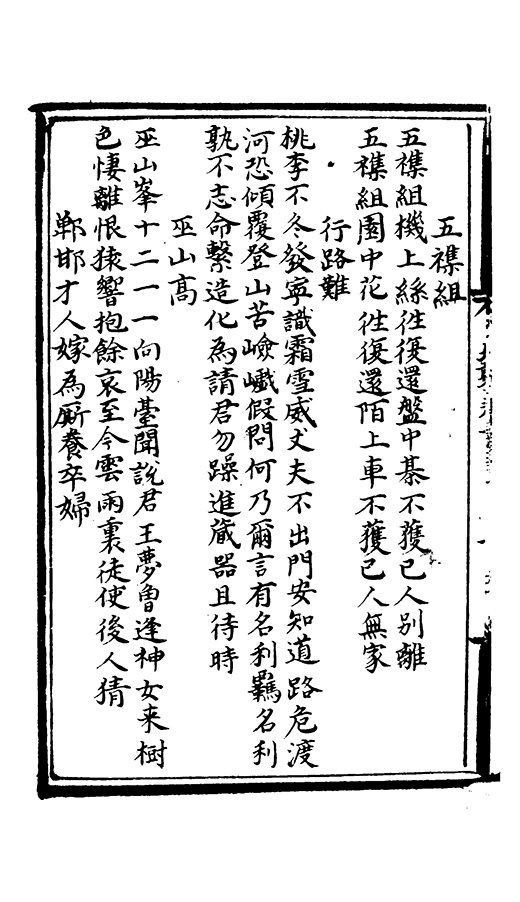 五襍組
五襍組機上絲徃復還盤中棊不獲已人別離
五襍組園中花徃復還陌上車不獲已人無家
行路難
桃李不冬發寧識霜雪威丈夫不出門安知道路危渡
河恐傾覆登山苦嶮巇假問何乃爾言有名利羈名利
孰不志命繫造化為請君勿躁進蔵器且待時
巫山高
巫山峯十二一一向陽臺聞說君王夢曾逢神女来樹
色悽離恨猿響抱餘哀至今雲雨裏徒使後人猜
邯邯才人嫁為厮養卒婦